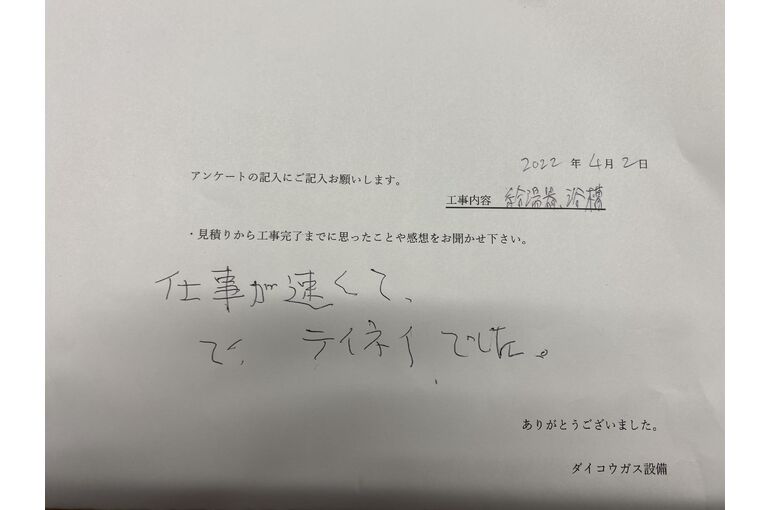 2022 年 4 月 2 日
アンケートの記入にご記入お願いします。
工事内容 給湯器、浴槽
・見積りから工事完了までに思ったことや感想をお聞かせ下さい。
仕事が速くて、
で、テイネイでした。
ありがとうございました。
ダイコウガス設備